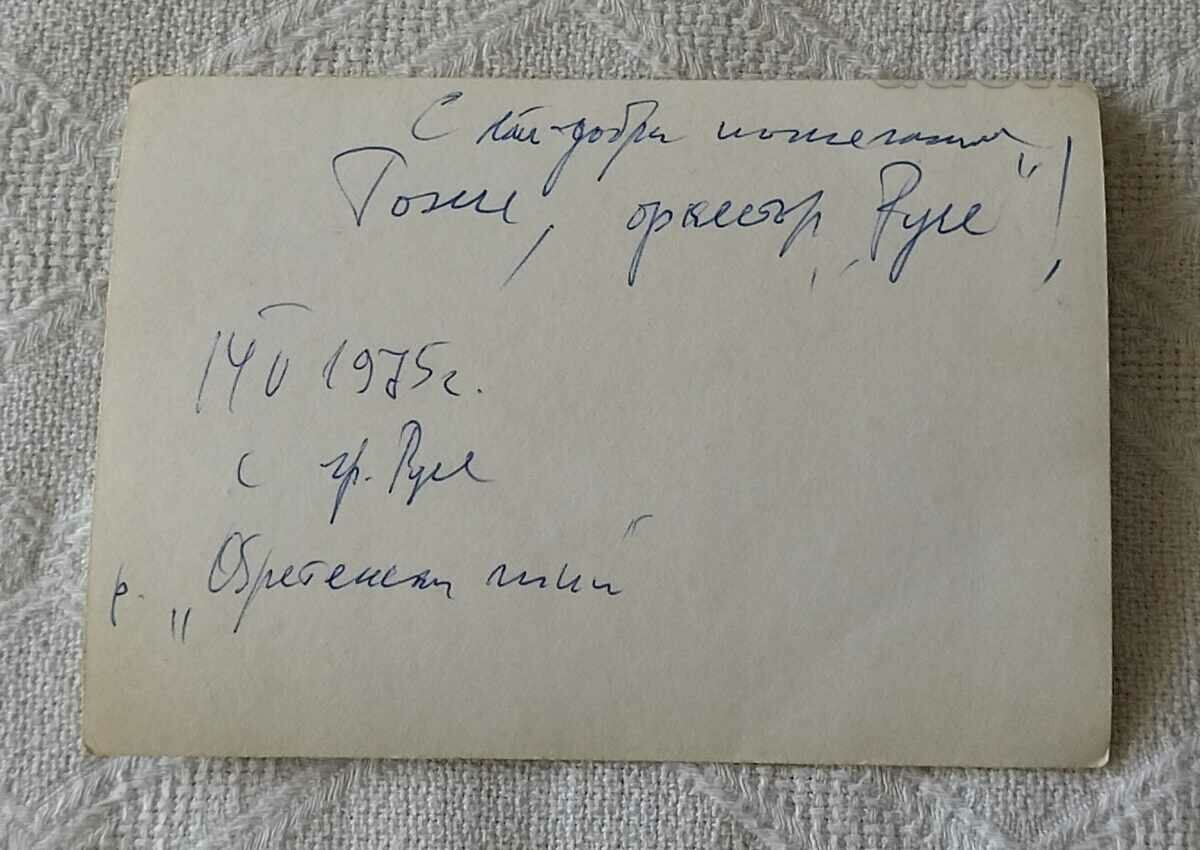 С най-добри пожелания
Гоже, оркестър „Русе"!
14 V 1975 г.
с гр. Русе
р. „Обретенски